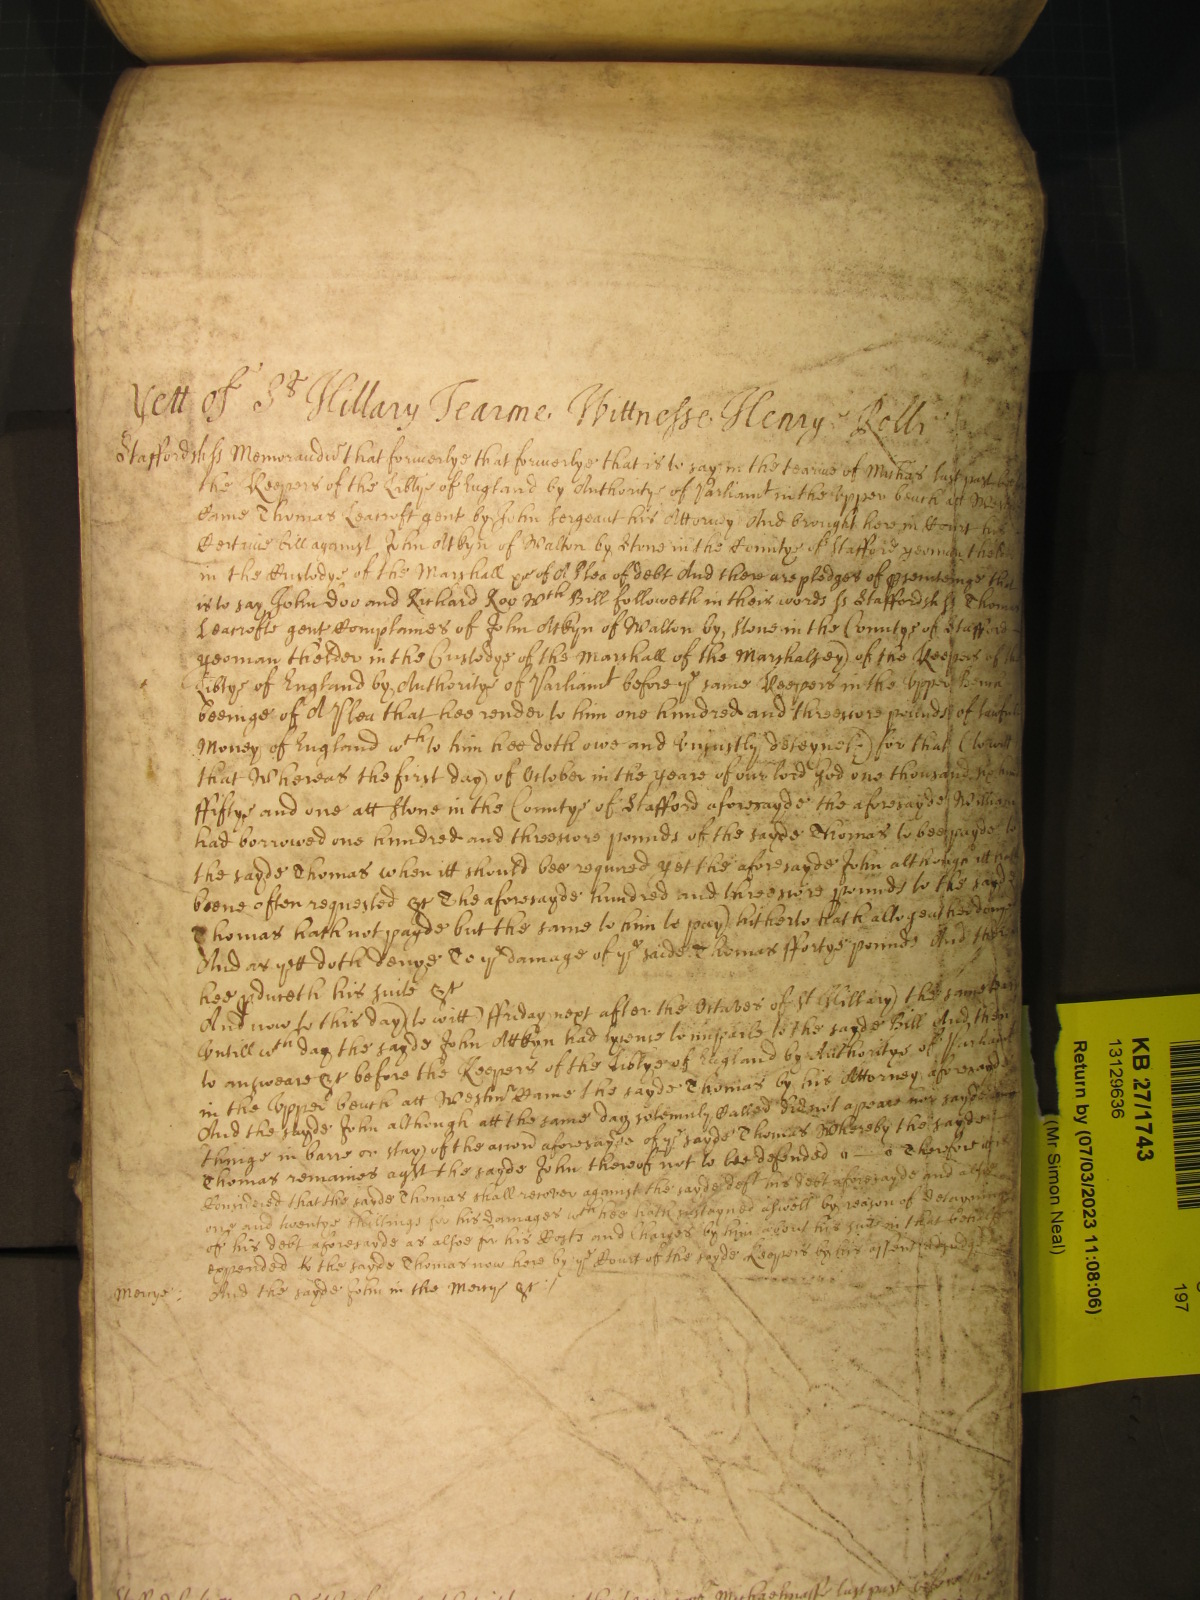 Yett of St Hillary Tearme. Wittnesse Henry Rolle
Staffordsh ss Memorandu that formerlye that formerlye that is to say in the tearme of Michas last past
the Keepers of the Liblye of England by Authoritye of Parliamt in the Upper bench att
Came Thomas Leacroft gent by John Sergeant his Attorney And brought here in Court
Certaine bill against John Atkyn of Walton by Stone in the Countye of Stafford yeoman
in the Custodye of the Marshall &c of A Plea of debt And there are pledges of prosecuteinge that
is to say John Doo and Richard Roo wch Bill followeth in theis words ss Staffordsh ss Thomas
Leacrofte gent Complaines of John Atkyn of Walton by Stone in the Countye of Stafford
yeoman beinge in the Custodye of the Marshall of the Marshalsey of the Keepers of the
Liblye of England by Authoritye of Parliamt before ye same Keepers in the Upper Bench
beeinge of A Plea that hee render to him one hundred and threescore pounds of lawfull
Money of England wch to him hee doth owe and Uniustly deteyneth for that (to witt
that Whereas the first day of October in the yeare of our lord God one thousand
ffiftye and one att Stone in the Countye of Stafford aforesayde the aforesayde William
had borrowed one hundred and threescore pounds of the sayde Thomas to bee payde to
the sayde Thomas when itt should bee required yet the aforesayde John although itt
beene often requested &c The aforesayde hundred and threescore pounds to the sayde
Thomas hath not payde but the same to him to pay hitherto hath altogeather denyed
And as yett doth denye To ye damage of ye saide Thomas ffortye pounds And there
hee pduceth his suite &c
And now to this day to witt ffriday next after the Octaves of St Hillary the same tearme
Untill wch day the sayde John Attkyn had lycence to imparle to the sayde Bill And then
to answeare &c before the Keepers of the Liblye of England by Authoritye of Parliamt
in the Upper bench att Westmr Came the sayde Thomas by his Attorney aforesayde
And the sayde John although att the same day solemnly Called did not apeare nor sayde any
thinge in barre or stay of the accon aforesayde of ye sayde Thomas Whereby the sayde
Thomas remaines agst the sayde John thereof not to bee defended Therefore itt is
Considered that the sayde Thomas shall recover against the sayde deft his debt aforesayde and alsoe
one and twentye shillings for his damages wch hee hath sustayned aswell by reason of detayninge
of his debt aforesayde as alsoe for his Costs and Charges by him about his suite in that behalfe
expended to the sayde Thomas now here by ye Court of the sayde Keepers by his assent adjudged
Mercye: And the sayde John in the Mercy &c
Michaelmasse last past before the
KB 27/1743
13129636
Return by (07/03/2023 11:08:06)
(Mr Simon Neal)
197